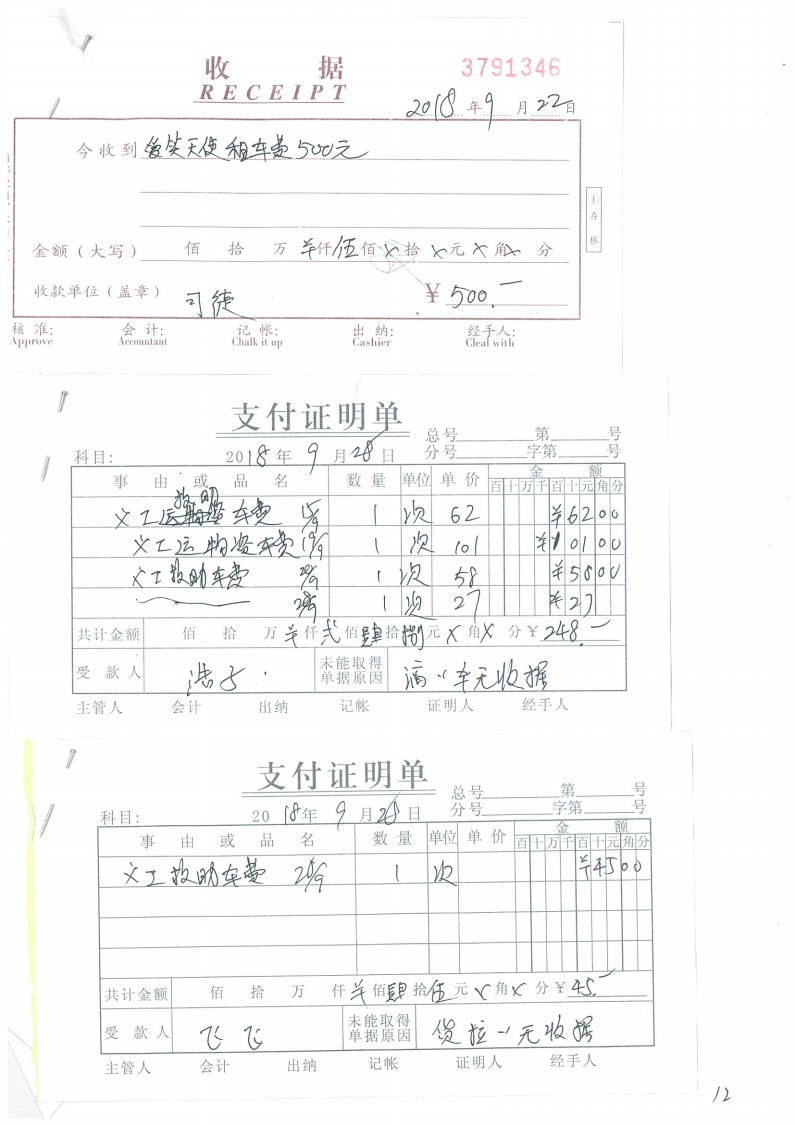 收 据
RECEIPT
3791346
2018 年 9 月 22 日
今收到 爱笑天使租车费500元
金额(大写) 佰 拾 万 仟 伍 佰 X 拾 X 元 X 角 X 分
收款单位(盖章) 司徒 ¥ 500.-
① 存根
核 准: 会 计: 记 帐: 出 纳: 经手人:
Approve Accountant Chalk it up Cashier Cleal with
支付证明单
总号 第 号
科目: 2018 年 9 月 28 日 分号 字第 号
事 由 或 品 名 数 量 单位 单 价 金 额
百 十 万 千 百 十 元 角 分
救助
义工运物资车费 15/9 1 次 62 ¥6200
义工运物资车费 19/9 1 次 101 ¥10100
义工救助车费 1 次 58 ¥5800
1 次 27 ¥27
共计金额 佰 拾 万 仟 弍 佰 肆 拾 捌 元 X 角 X 分 ¥ 248.-
受 款 人 浩子 未能取得单据原因 滴〃车无收据
主管人 会计 出纳 记帐 证明人 经手人
支付证明单
总号 第 号
科目: 2018 年 9 月 28 日 分号 字第 号
事 由 或 品 名 数 量 单位 单 价 金 额
百 十 万 千 百 十 元 角 分
义工救助车费 1 次 ¥4500
共计金额 佰 拾 万 仟 佰 肆 拾 伍 元 X 角 X 分 ¥ 45.-
受 款 人 飞飞 未能取得单据原因 货拉〃无收据
主管人 会计 出纳 记帐 证明人 经手人
12